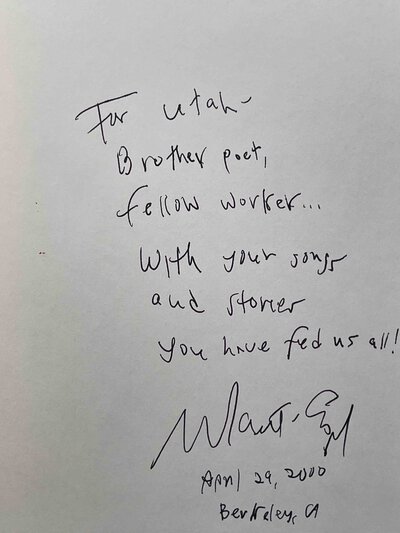 For Utah-
Brother poet,
fellow worker...
With your songs
and stories
you have fed us all!
April 29, 2000
Berkeley, CA